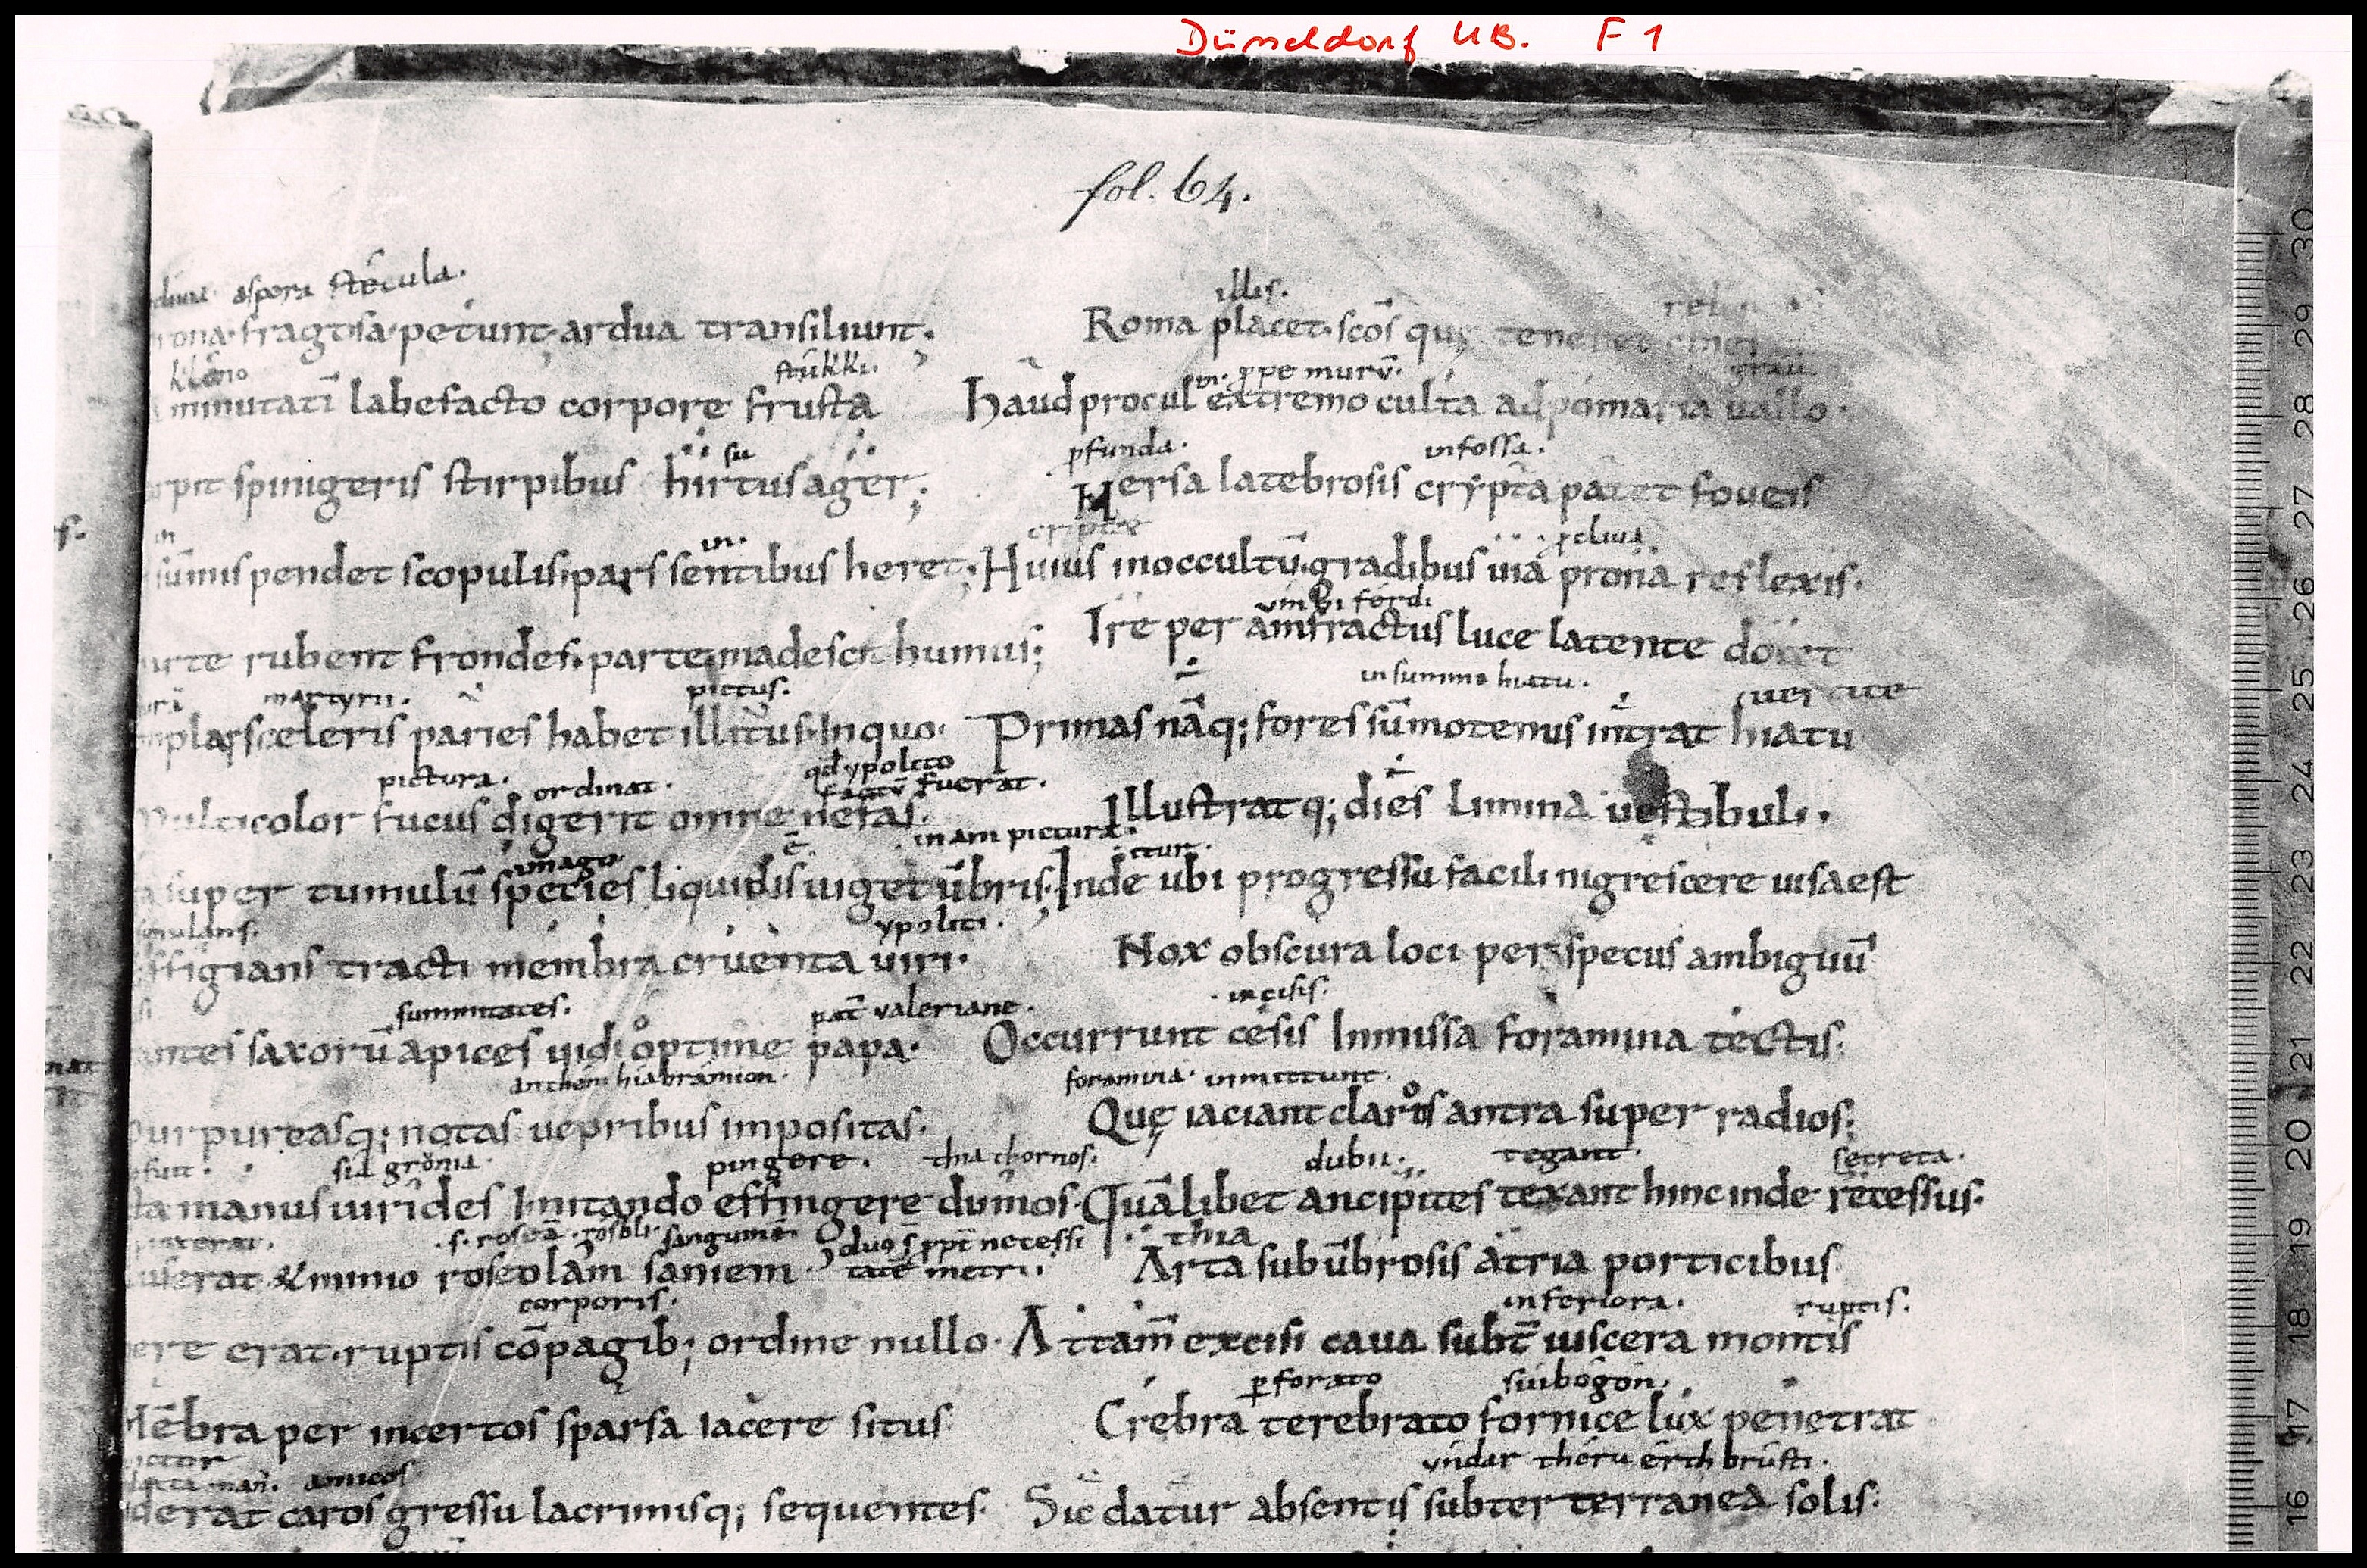 Düsseldorf UB. F 1
fol. 64.
aspera stecula.
fragosa petunt ardua transiliunt.
kleno stukki.
minutatī labefacto corpore frusta
su
spinigeris stirpibus hirtus ager;
in in.
sūmis pendet scopulis pars sentibus heret;
rubent frondes. parte madescit humus;
martyrii. pictus.
sceleris paries habet illitus. In quo
pictura. ordinat. qđ ypolito factū fuerat.
Multicolor fucus digerit omne nefas.
imago ē in am pictura.
super tumulū species liquidis uiget ūbris.
simulans. ypoliti.
effigians tracti membra cruenta uiri.
summitates. valeriane.
saxorū apices uidi optime papa.
an them hiabramion.
Purpureasq; notas uepribus impositas.
fuit. sia gronia. pingere. thia thornos.
manus uirides Imitando effingere dumos.
.s. roseā. rosoli sanguinē duo s̄ ppt̄ necessi
tatē metri.
& minio roseolam saniem
corporis.
erat. ruptis cōpagib; ordine nullo.
Mēbra per incertos sparsa iacere situs
amicos
caros gressu lacrimisq; sequentes
illis.
Roma placet. scōs quę
ꝓpe murū.
Haud procul extremo culta ad pomaria uallo.
ꝓfunda. in fossa.
Mersa latebrosis crypta patet foueis
cripte ꝓcliua
Huius in occultū. gradibus uia prona reflexis.
umbi ferdi
Ire per amfractus luce latente docet
in summo hiatu.
Primas nāq; fores sūmo tenus intrat hiatu
Illustratq; dies Limina uestibuli.
itur.
Inde ubi progressu facili nigrescere uisa est
Nox obscura loci per specus ambiguū
incisis.
Occurrunt cesis Inmissa foramina tectis.
foramina. inmittunt.
Quę iaciant claros antra super radios;
dubii. tegant. secreta.
Quālibet ancipites texant hinc inde recessus.
thia
Arta sub ūbrosis atria porticibus
inferiora. ruptis.
Attam̄ excisi caua subt̄ uiscera montis
ꝑforato suibogon.
Crebra terebrato fornice lux penetrat
undar theru erth brusti.
Sic datur absentis subter terranea solis.